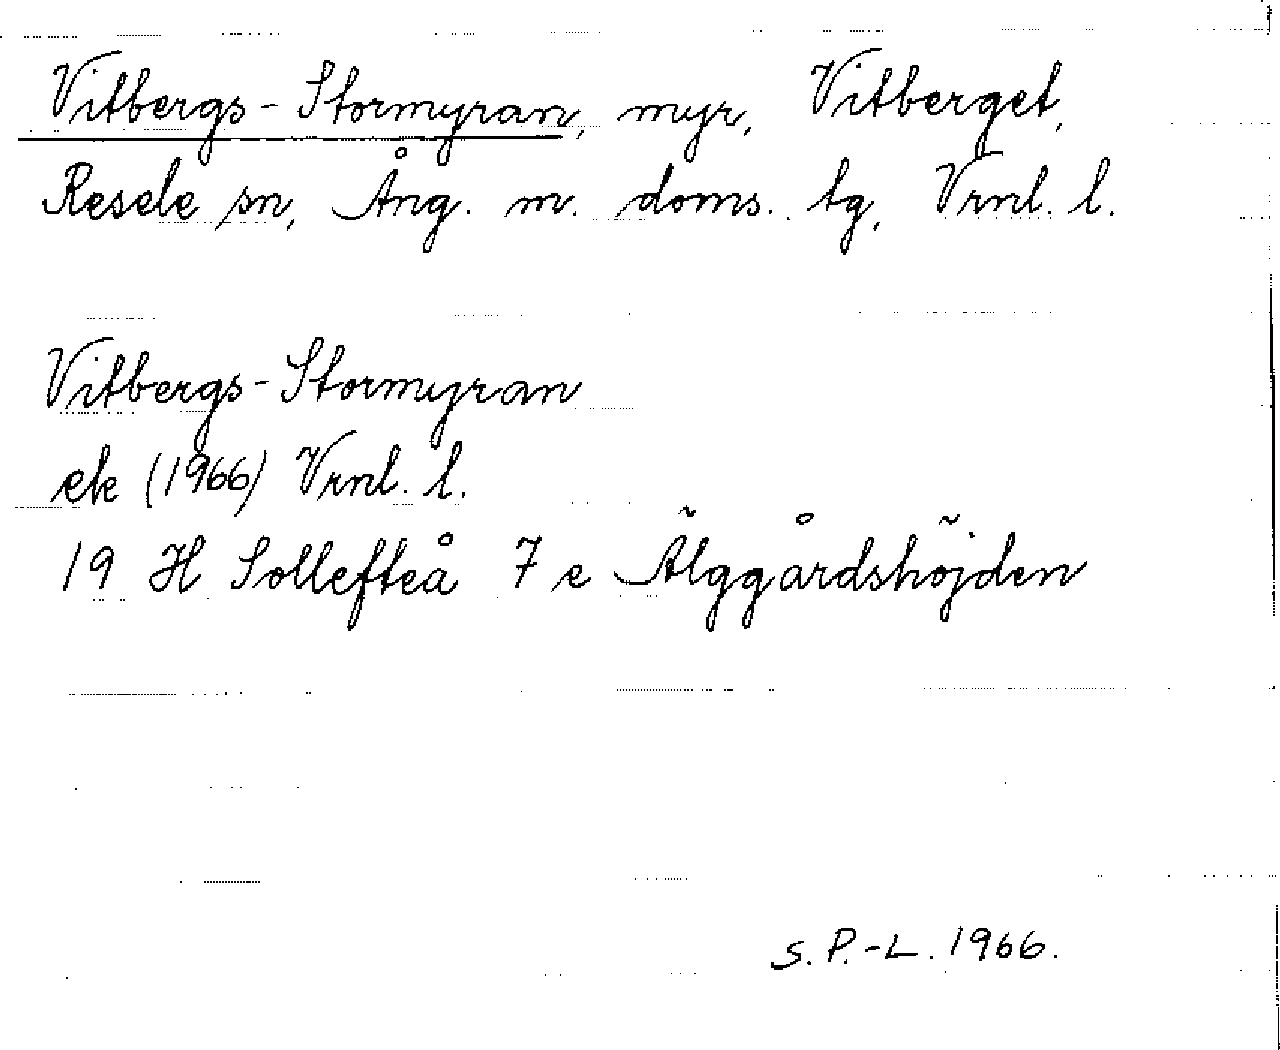 Vitbergs-Stormyran, myr, Vitberget,
Resele sn, Ång. m. doms. tg, Vrnl. l.
Vitbergs-Stormyran
ek (1966) Vrnl. l.
19 H Sollefteå 7 e Älggårdshöjden
S. P.-L. 1966.